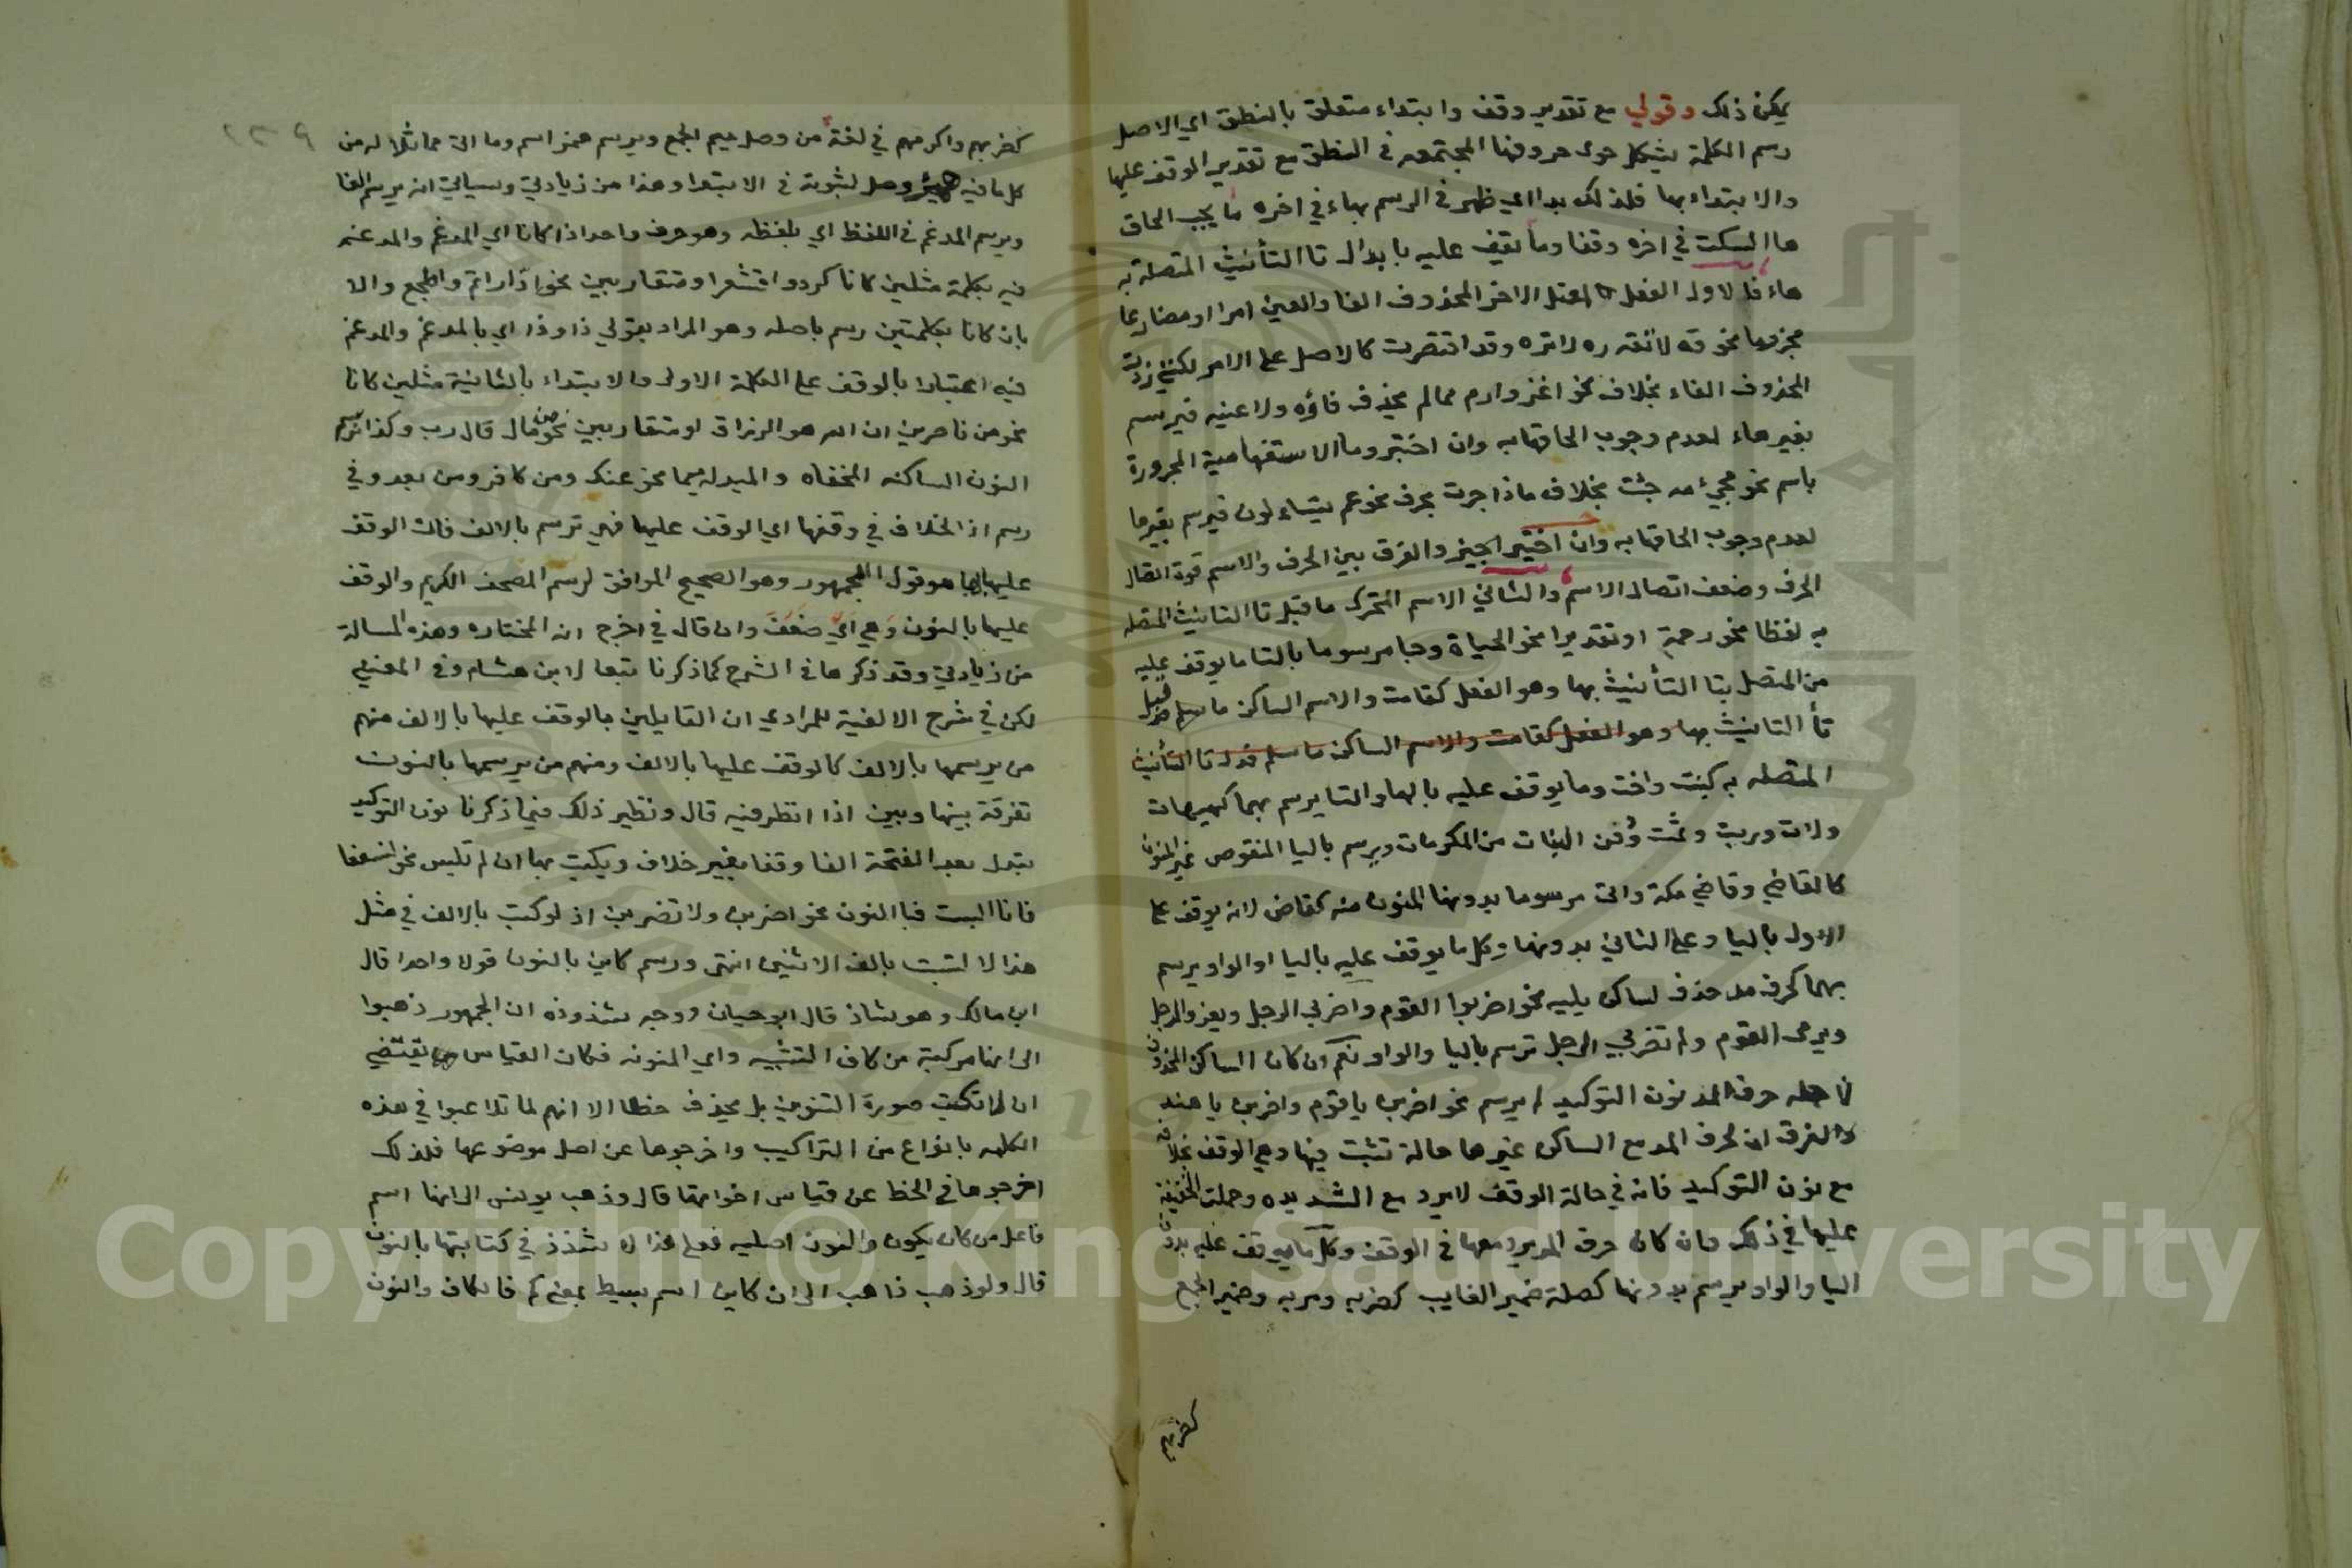 يمكن ذلك وقولي مع تقدير وقف وابتداء متعلق بالنطق اي الاصل
رسم الكلمة بشكل حوى حروفها المجتمعه في النطق مع تقدير الوقف عليها
والابتداء بها فلذلك بدا اي ظهر في الرسم بهاء في اخره ما يجب الحاق
ها السكت في اخره وقفا وما تقف عليه بابدال تا التأنيث المتصلة به
هاء فالاول الفعل المعتل الاخر المحذوف الفا والعين امرا او مضارعا
مجزوما نحو قه لا تقه ره لا تره وقد اقتصرت كالاصل على الامر لكنني زدت
المحذوف الفاء بخلاف نحو اغز وارم مما لم يحذف فاؤه ولا عينه فيرسم
بغير هاء لعدم وجوب الحاقها به وان اختير وما الاستفهامية المجرورة
باسم نحو مجيء مه جئت بخلاف ما اذا جرت بحرف نحو عم يتساءلون فيرسم بغيرها
لعدم وجوب الحاقها به وان اختير اجيز والفرق بين الحرف والاسم قوة اتصال
الحرف وضعف اتصال الاسم والثاني الاسم المتحرك ما قبل تا التانيث المتصله
به لفظا نحو رحمة او تقديرا نحو الحياة وجا مرسوما بالتا ما يوقف عليه
من المتصل بتا التأنيث بها وهو الفعل كقامت والاسم الساكن ما قبل
تأ التانيث بها وهو الفعل كقامت والاسم الساكن ما تا التأنيث
المتصله به كبنت واخت وما يوقف عليه بالها والتا يرسم بهما كهيهات
ولات وربت وثمت ودفن البنات من المكرمات ويرسم باليا المنقوص غير المنون
كالقاضي وقاضي مكة واتى مرسوما بدونها المنون منه كقاض لانه يوقف على
الاول باليا وعلى الثاني بدونها وكل ما يوقف عليه باليا او الواو يرسم
بهما كحرف مد حذف لساكن يليه نحو اضربوا القوم واضربي الرجل ويغزو الرجل
ويرمي القوم ولم تضربي الرجل ترسم باليا والواو نعم ان كان الساكن المحذوف
لاجله حرف المد نون التوكيد لم يرسم نحو اضربن يا قوم واضربن يا هند
والفرق ان لحرف المد مع الساكن غيرها حالة تثبت فيها وهي الوقف بخلافه
مع نون التوكيد فانه في حالة الوقف لا يرد مع الشديده وحملت الخفيفة
عليها في ذلك وان كان حرف المد يرد معها في الوقف وكل ما يوقف عليه بدون
اليا والواو يرسم بدونها كصلة ضمير الغايب كضربه ومر به وضمير الجمع
كضربهم
٢٣٩
كضربهم واكرمهم في لغة من وصل ميم الجمع ويرسم همز اسم وما اتى مماثلا له من
كل ما فيه همز وصل لثبوته في الابتدا وهذا من زيادتي وسياتي انه يرسم الفا
ويرسم المدغم في اللفظ اي بلفظه وهو حرف واحد اذا كانا اي المدغم والمدغم
فيه بكلمة مثلين كانا كردوا او متقاربين نحو ادّاراتم واطجع والا
بان كانا بكلمتين رسم باصله وهو المراد بقولي ذا وذا اي بالمدغم والمدغم
فيه اعتبارا بالوقف على الكلمة الاولى والابتداء بالثانية مثلين كانا
نحو من ناصرين ان الله هو الرزاق او متقاربين نحو من مال قال رب وكذا ترسم
النون الساكنه المخفاه والمبدلة ميما نحو عنك ومن كافر ومن بعد وفي
رسم اذا الخلاف في وقفها اي الوقف عليها فهي ترسم بالالف فان الوقف
عليها بها هو قول الجمهور وهو الصحيح الموافق لرسم المصحف الكريم والوقف
عليها بالنون وهي اي ضعف وان قال في اخرج انه المختار وهذه المسالة
من زيادتي وقد ذكرها في الشرح كما ذكرنا تبعا لابن هشام وفي المغني
لكن في شرح الالفية للمرادي ان القايلين بالوقف عليها بالالف منهم
من يرسمها بالالف كالوقف عليها بالالف ومنهم من يرسمها بالنون
تفرقة بينها وبين اذا انظر فيه قال ونظير ذلك فيما ذكرنا نون التوكيد
تبدل بعد الفتحة الفا وقفا بغير خلاف ويكتب بها ان لم تلبس نحو لنسفعا
فان البست فبالنون نحو اضربن ولا تضربن اذ لو كتبت بالالف في مثل
هذا لالتبست بالف الاثنين انتهى ورسم كاين بالنون قولا واحدا قال
ابن مالك وهو شاذ قال ابو حيان ووجه شذوذه ان الجمهور ذهبوا
الى انها مركبة من كاف التشبيه واي المنونه فكان القياس يقتضي
ان لا تكتب صورة التنوين بل يحذف خطا الا انهم لما تلاعبوا في هذه
الكلمه بانواع من التراكيب واخرجوها عن اصل موضوعها فلذلك
اخرجوها في الخط عن قياس اخواتها قال وذهب يونس الى انها اسم
فاعل من كان يكون والنون اصليه فعلى هذا لا شذوذ في كتابتها بالنون
قال ولو ذهب ذاهب الى ان كاين اسم بسيط بمعنى كم فالكاف والنون
Copyright © King Saud University